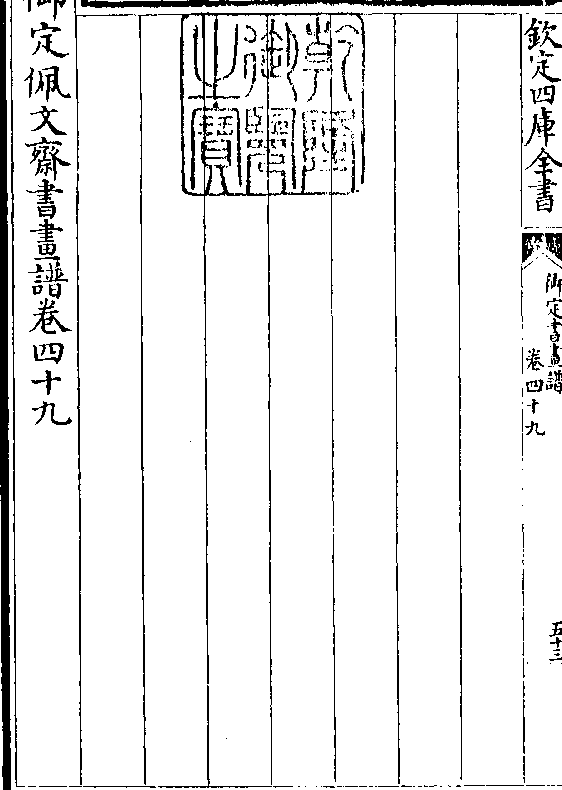 欽定四庫全書
御定書畫譜
卷四十九
五十三
乾隆御覽之寶
御定佩文齋書畫譜卷四十九